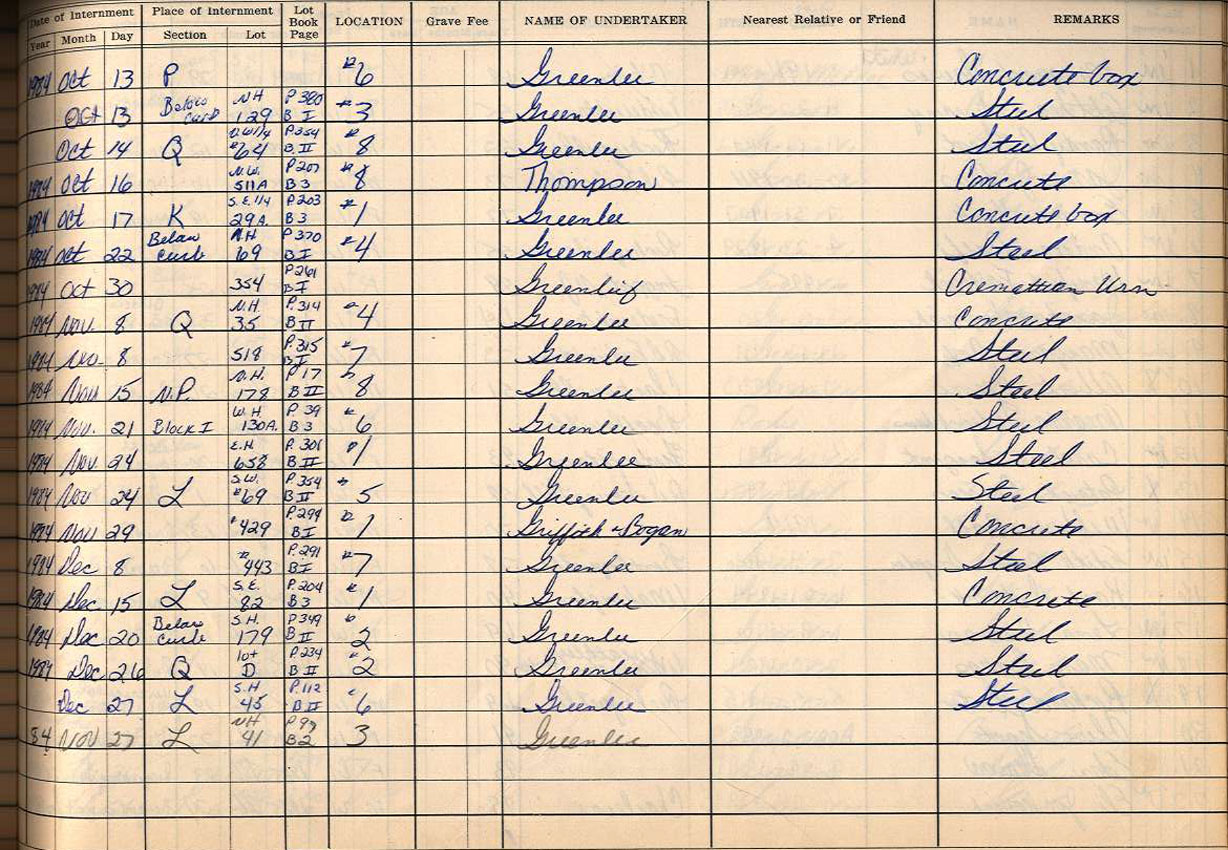 Date of Internment Place of Internment Lot Book Page LOCATION Grave Fee NAME OF UNDERTAKER Nearest Relative or Friend REMARKS
Year Month Day Section Lot
1984 Oct 13 P #6 Greenlee Concrete box
Oct 13 Below curb N H 129 P 380 B I #3 Greenlee Steel
Oct 14 Q #64 P.354 B II #8 Greenlee Steel
1984 Oct 16 N.W. 511A P207 B3 #8 Thompson Concrete
1984 Oct 17 K S.E. 1/4 29A. P203 B3 #1 Greenlee Concrete box
1984 Oct 22 Below curb N.H. 69 P370 B I #4 Greenlee Steel
1984 Oct 30 354 P261 B I Greenlief Cremation Urn
1984 Nov. 8 Q N.H. 35 P.314 B II #4 Greenlee Concrete
1984 Nov. 8 518 P.315 B I #7 Greenlee Steel
1984 Nov 15 N.P. N.H. 178 P17 B II 8 Greenlee Steel
1984 Nov. 21 Block I W.H. 130A. P.39 B3 #6 Greenlee Steel
1984 Nov. 24 E.H. 658 P.306 B II #1 Greenlee Steel
1984 Nov 24 L S.W. #69 P.354 B II #5 Greenlee Steel
1984 Nov 29 #429 P.294 B I #1 Griffith & Bogan Concrete
1984 Dec 8 #443 P.291 B I #7 Greenlee Steel
1984 Dec 15 L S.E. 82 P.204 B3 #1 Greenlee Concrete
1984 Dec 20 Below curb S.H. 179 P349 B II #2 Greenlee Steel
1984 Dec 26 Q lot D P.234 B II #2 Greenlee Steel
Dec 27 L S.H 45 P.112 B II #6 Greenlee Steel
84 Nov 27 L NH 41 B2 3 Greenlee